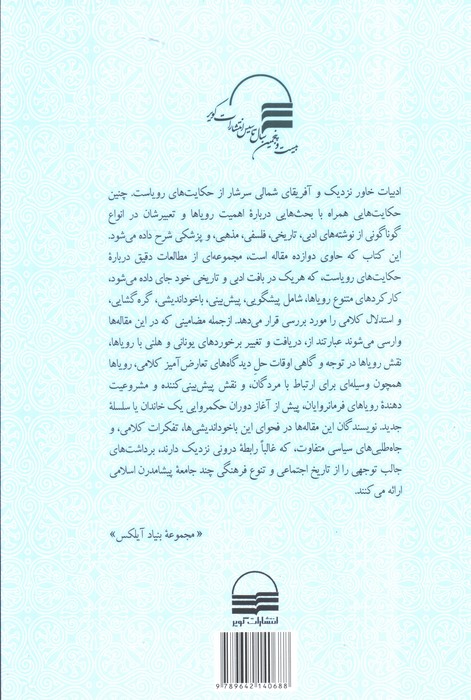 بیست و پنجمین سال تاسیس انتشارات کویر
ادبیات خاور نزدیک و آفریقای شمالی سرشار از حکایت‌های رویاست. چنین
حکایت‌هایی همراه با بحث‌هایی دربارهٔ اهمیت رویاها و تعبیرشان در انواع
گوناگونی از نوشته‌های ادبی، تاریخی، فلسفی، مذهبی، و پزشکی شرح داده می‌شود.
این کتاب که حاوی دوازده مقاله است، مجموعه‌ای از مطالعات دقیق دربارهٔ
حکایت‌های رویاست، که هریک در بافت ادبی و تاریخی خود جای داده می‌شود،
کارکردهای متنوع رویاها، شامل پیشگویی، پیش‌بینی، باخوداندیشی، گره‌گشایی،
و استدلال کلامی را مورد بررسی قرار می‌دهد. ازجمله مضامینی که در این مقاله‌ها
وارسی می‌شوند عبارتند از، دریافت و تغییر برخوردهای یونانی و هلنی با رویاها،
نقش رویاها در توجه و گاهی اوقات حل دیدگاه‌های تعارض‌آمیز کلامی، رویاها
همچون وسیله‌ای برای ارتباط با مردگان، و نقش پیش‌بینی‌کننده و مشروعیت
دهندهٔ رویاهای فرمانروایان، پیش از آغاز دوران حکمروایی یک خاندان یا سلسلهٔ
جدید. نویسندگان این مقاله‌ها در فحوای این باخوداندیشی‌ها، تفکرات کلامی، و
جاه‌طلبی‌های سیاسی متفاوت، که غالباً رابطهٔ درونی نزدیک دارند، برداشت‌های
جالب توجهی را از تاریخ اجتماعی و تنوع فرهنگی چند جامعهٔ پیشامدرن اسلامی
ارائه می‌کنند.
«مجموعهٔ بنیاد آیلکس»
انتشارات کویر
9 789642 140688